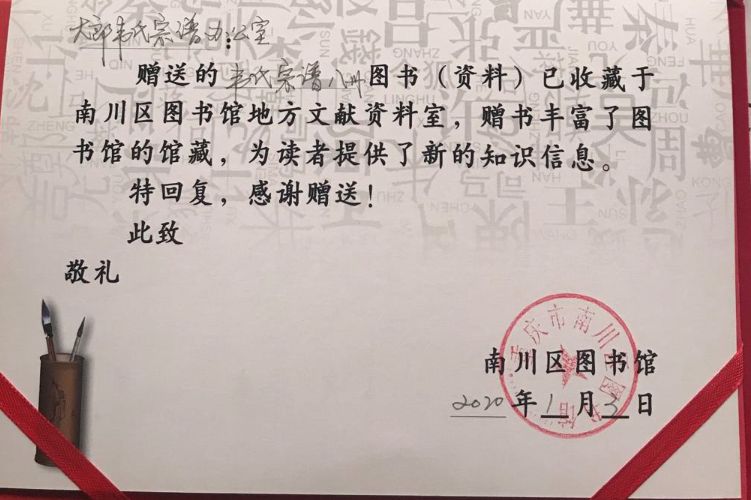 大郎韦氏宗谱办公室:
赠送的韦氏宗谱八册图书（资料）已收藏于
南川区图书馆地方文献资料室，赠书丰富了图
书馆的馆藏，为读者提供了新的知识信息。
特回复，感谢赠送！
此致
敬礼
重庆市南川区图书馆
南川区图书馆
2020年1月3日